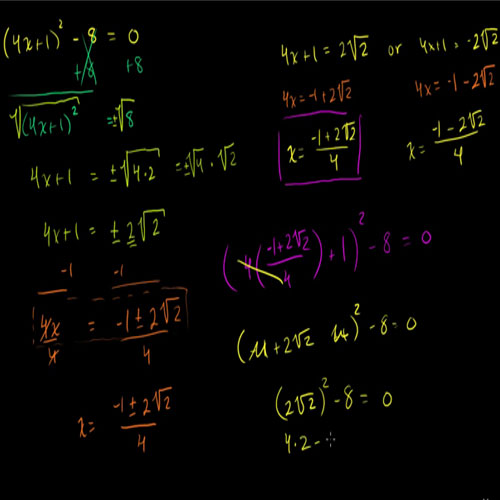 (4x+1)² - 8 = 0
+8 +8
√(4x+1)² = ±√8
4x+1 = ±√4·2 = ±√4 · √2
4x+1 = ±2√2
-1 -1
4x/4 = -1±2√2/4
x = -1±2√2/4
4x+1 = 2√2 or 4x+1 = -2√2
4x = -1+2√2 4x = -1-2√2
x = -1+2√2/4 x = -1-2√2/4
(4(-1+2√2/4)+1)² - 8 = 0
(-1+2√2+1)² - 8 = 0
(2√2)² - 8 = 0
4·2 -